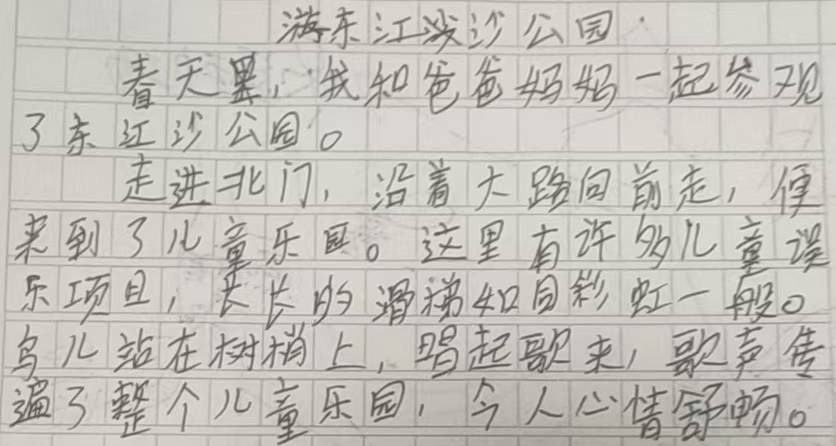 游东江湾沙公园
春天里，我和爸爸妈妈一起参观
了东江沙公园。
走进北门，沿着大路向前走，便
来到了儿童乐园。这里有许多儿童误
乐项目，长长的滑梯如同彩虹一般。
鸟儿站在树梢上，唱起歌来，歌声传
遍了整个儿童乐园，令人心情舒畅。